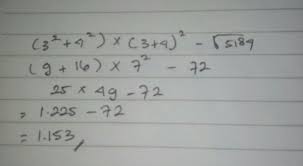 (3² + 4²) × (3+4)² - √5184
(9 + 16) × 7² - 72
25 × 49 - 72
= 1.225 - 72
= 1.153